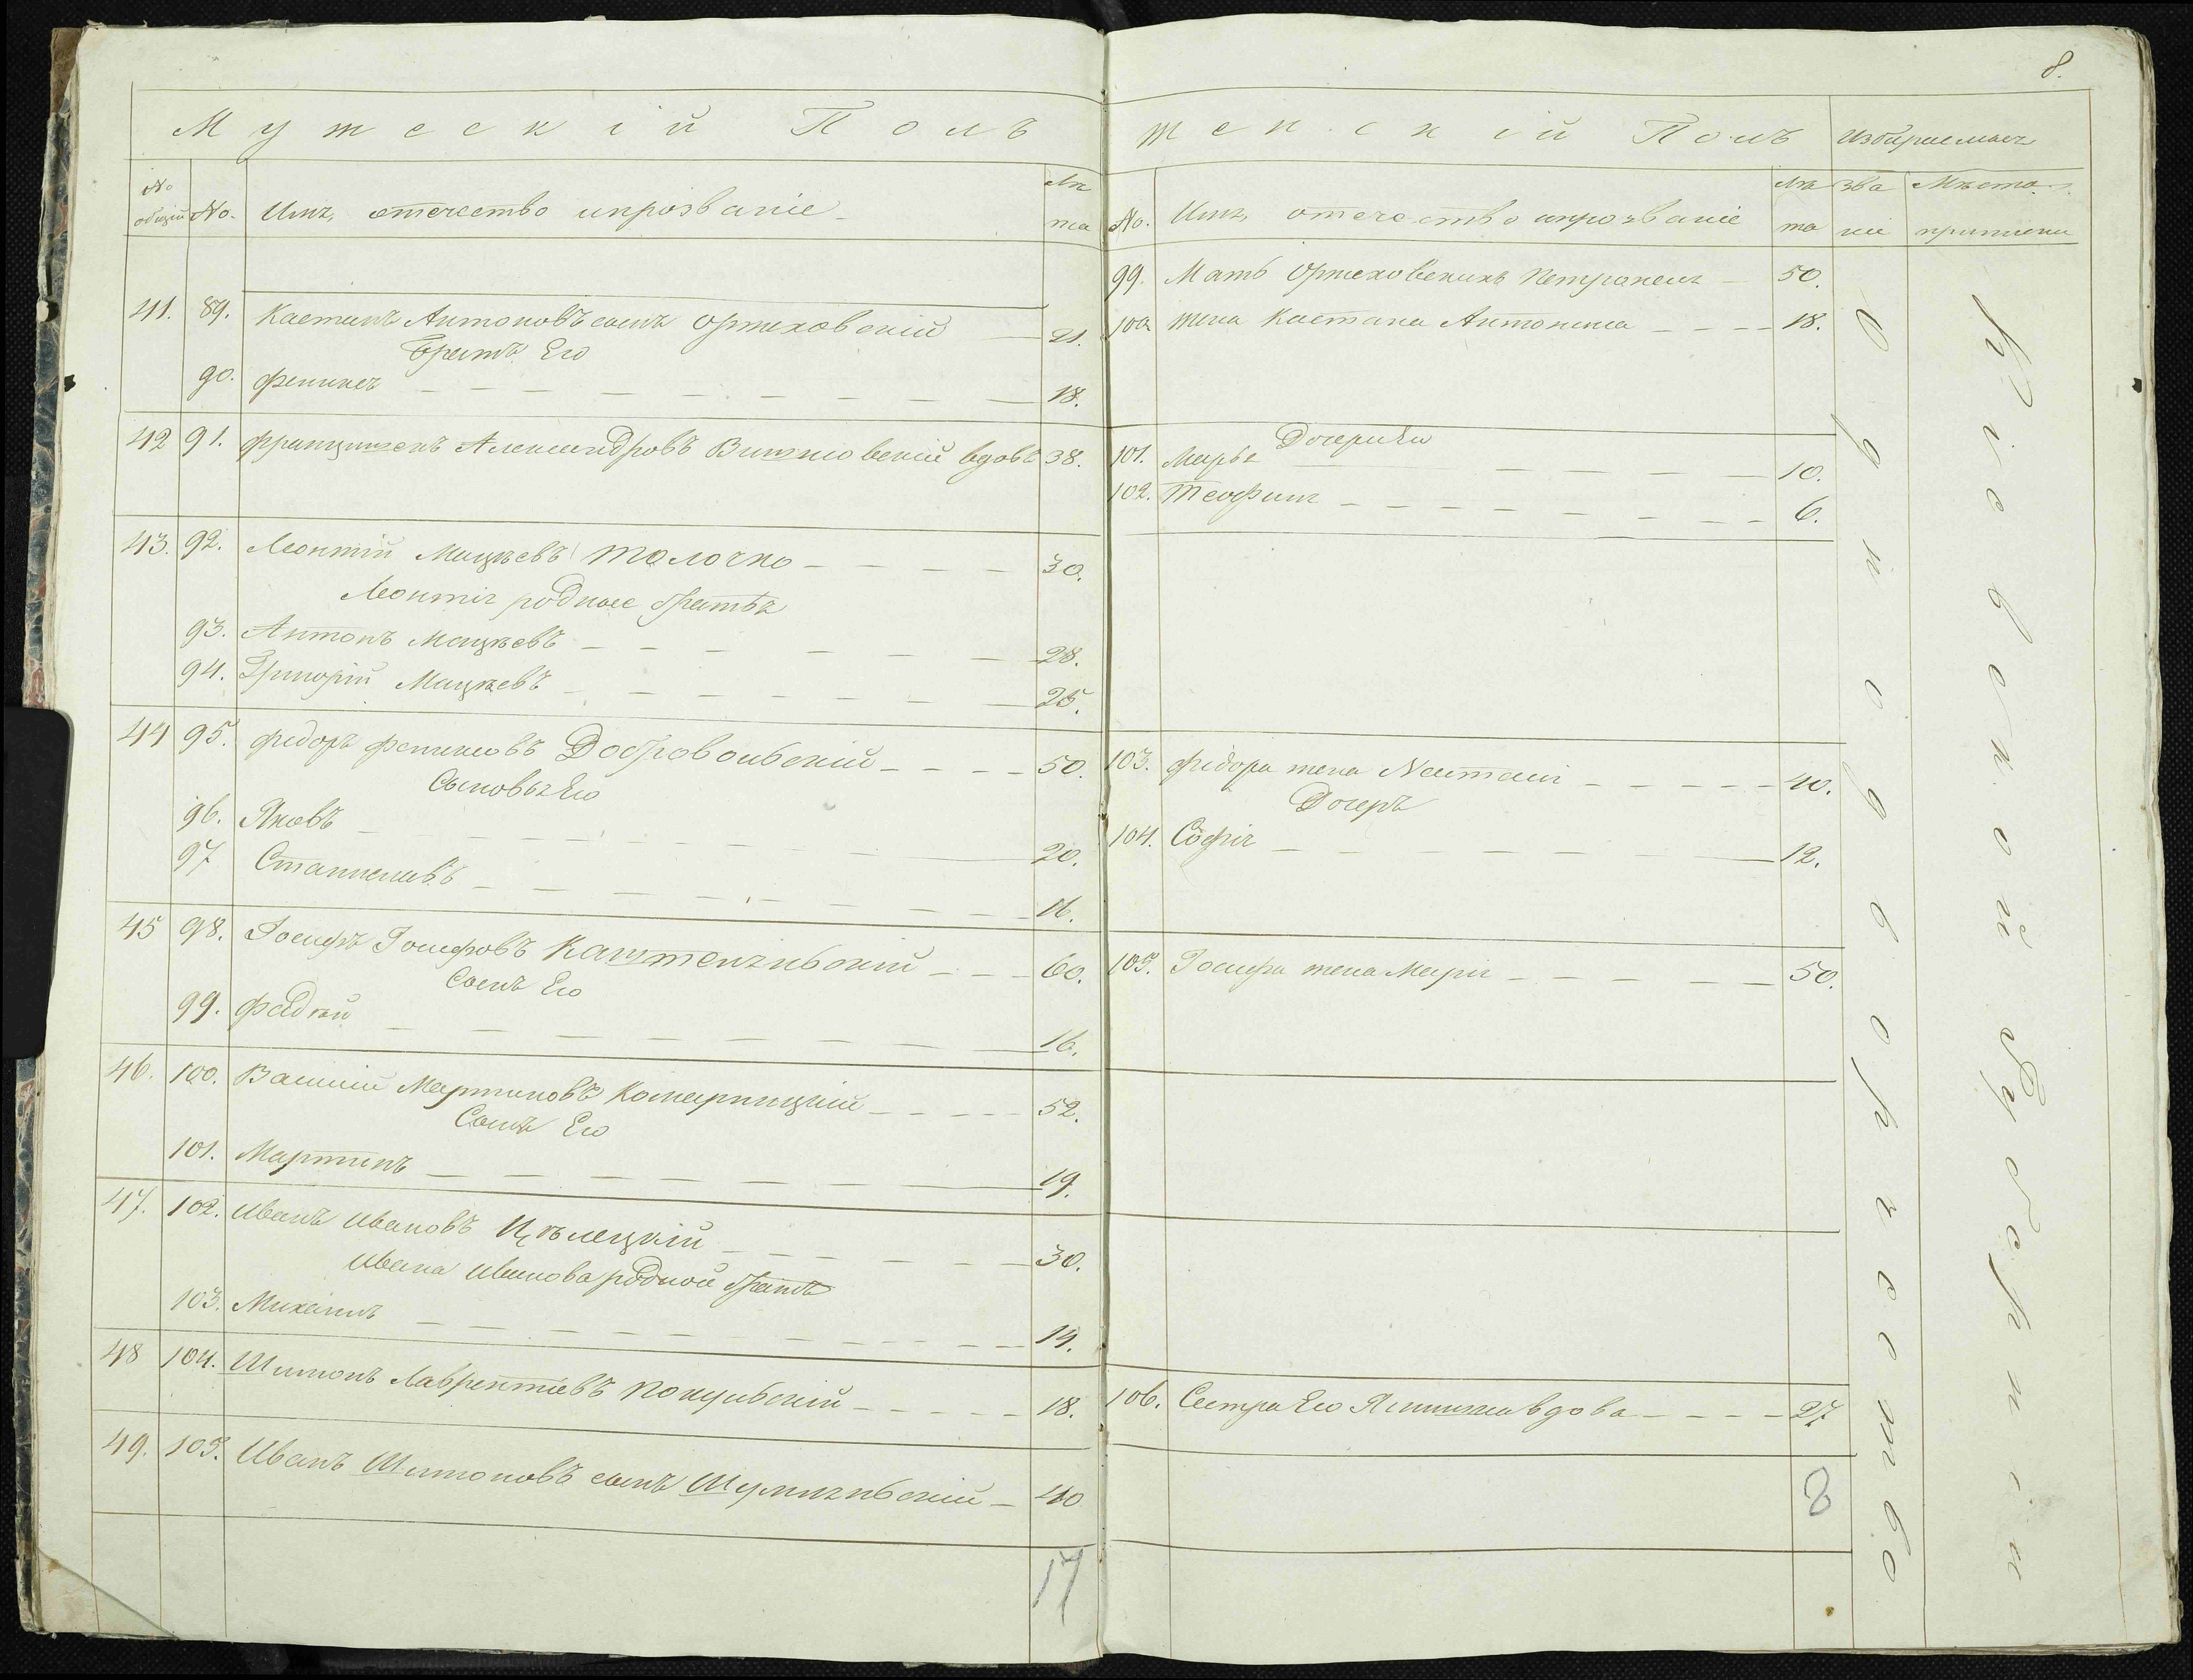 8.
Мужескій Полъ
№ общій
№.
Имя, отечество и прозваніе
Лѣта
41. 89. Каетанъ Антоновъ сынъ Оржеховскій — 21.
Братъ Его
90. Феликсъ — 18.
42 91. Францишекъ Александровъ Вишневскій вдовъ 38.
43. 92. Леонтій Мацѣевъ Толочко — 30.
Леонтія родные братья
93. Антонъ Мацѣевъ — 28.
94. Григорій Мацѣевъ — 25.
44 95. Федоръ Феликсовъ Добровольскій — 50.
Сыновья Его
96. Яковъ — 20.
97 Станиславъ — 16.
45 98. Іосифъ Іосифовъ — 60.
Сынъ Его
99. Фадѣй — 16.
46. 100. Василій Мартиновъ Комарницкій — 52.
Сынъ Его
101. Мартинъ — 19.
47. 102. Иванъ Ивановъ Цѣлецкій — 30.
Ивана Иванова родной братъ
103. Михаилъ — 14.
48 104. Шимонъ Лаврентіевъ — 18.
49. 105. Иванъ Шимоновъ сынъ — 40
17
Женскій Полъ
№.
Имя, отечество и прозваніе
Лѣта
99. Мать Оржеховскихъ Петронеля — 50.
100 Жена Каетана Антонина — 18.
Дочери Его
101. Марья — 10.
102. Теофиля — 6.
103. Федора жена Наталія — 40.
Дочеръ
104. Софія — 12.
105. Іосифа жена Марія — 50.
106. Сестра Его вдова — 27
8
Избираемыя
Званіе
Мѣста
приписки
Однодворчество
Кіевской Губерніи